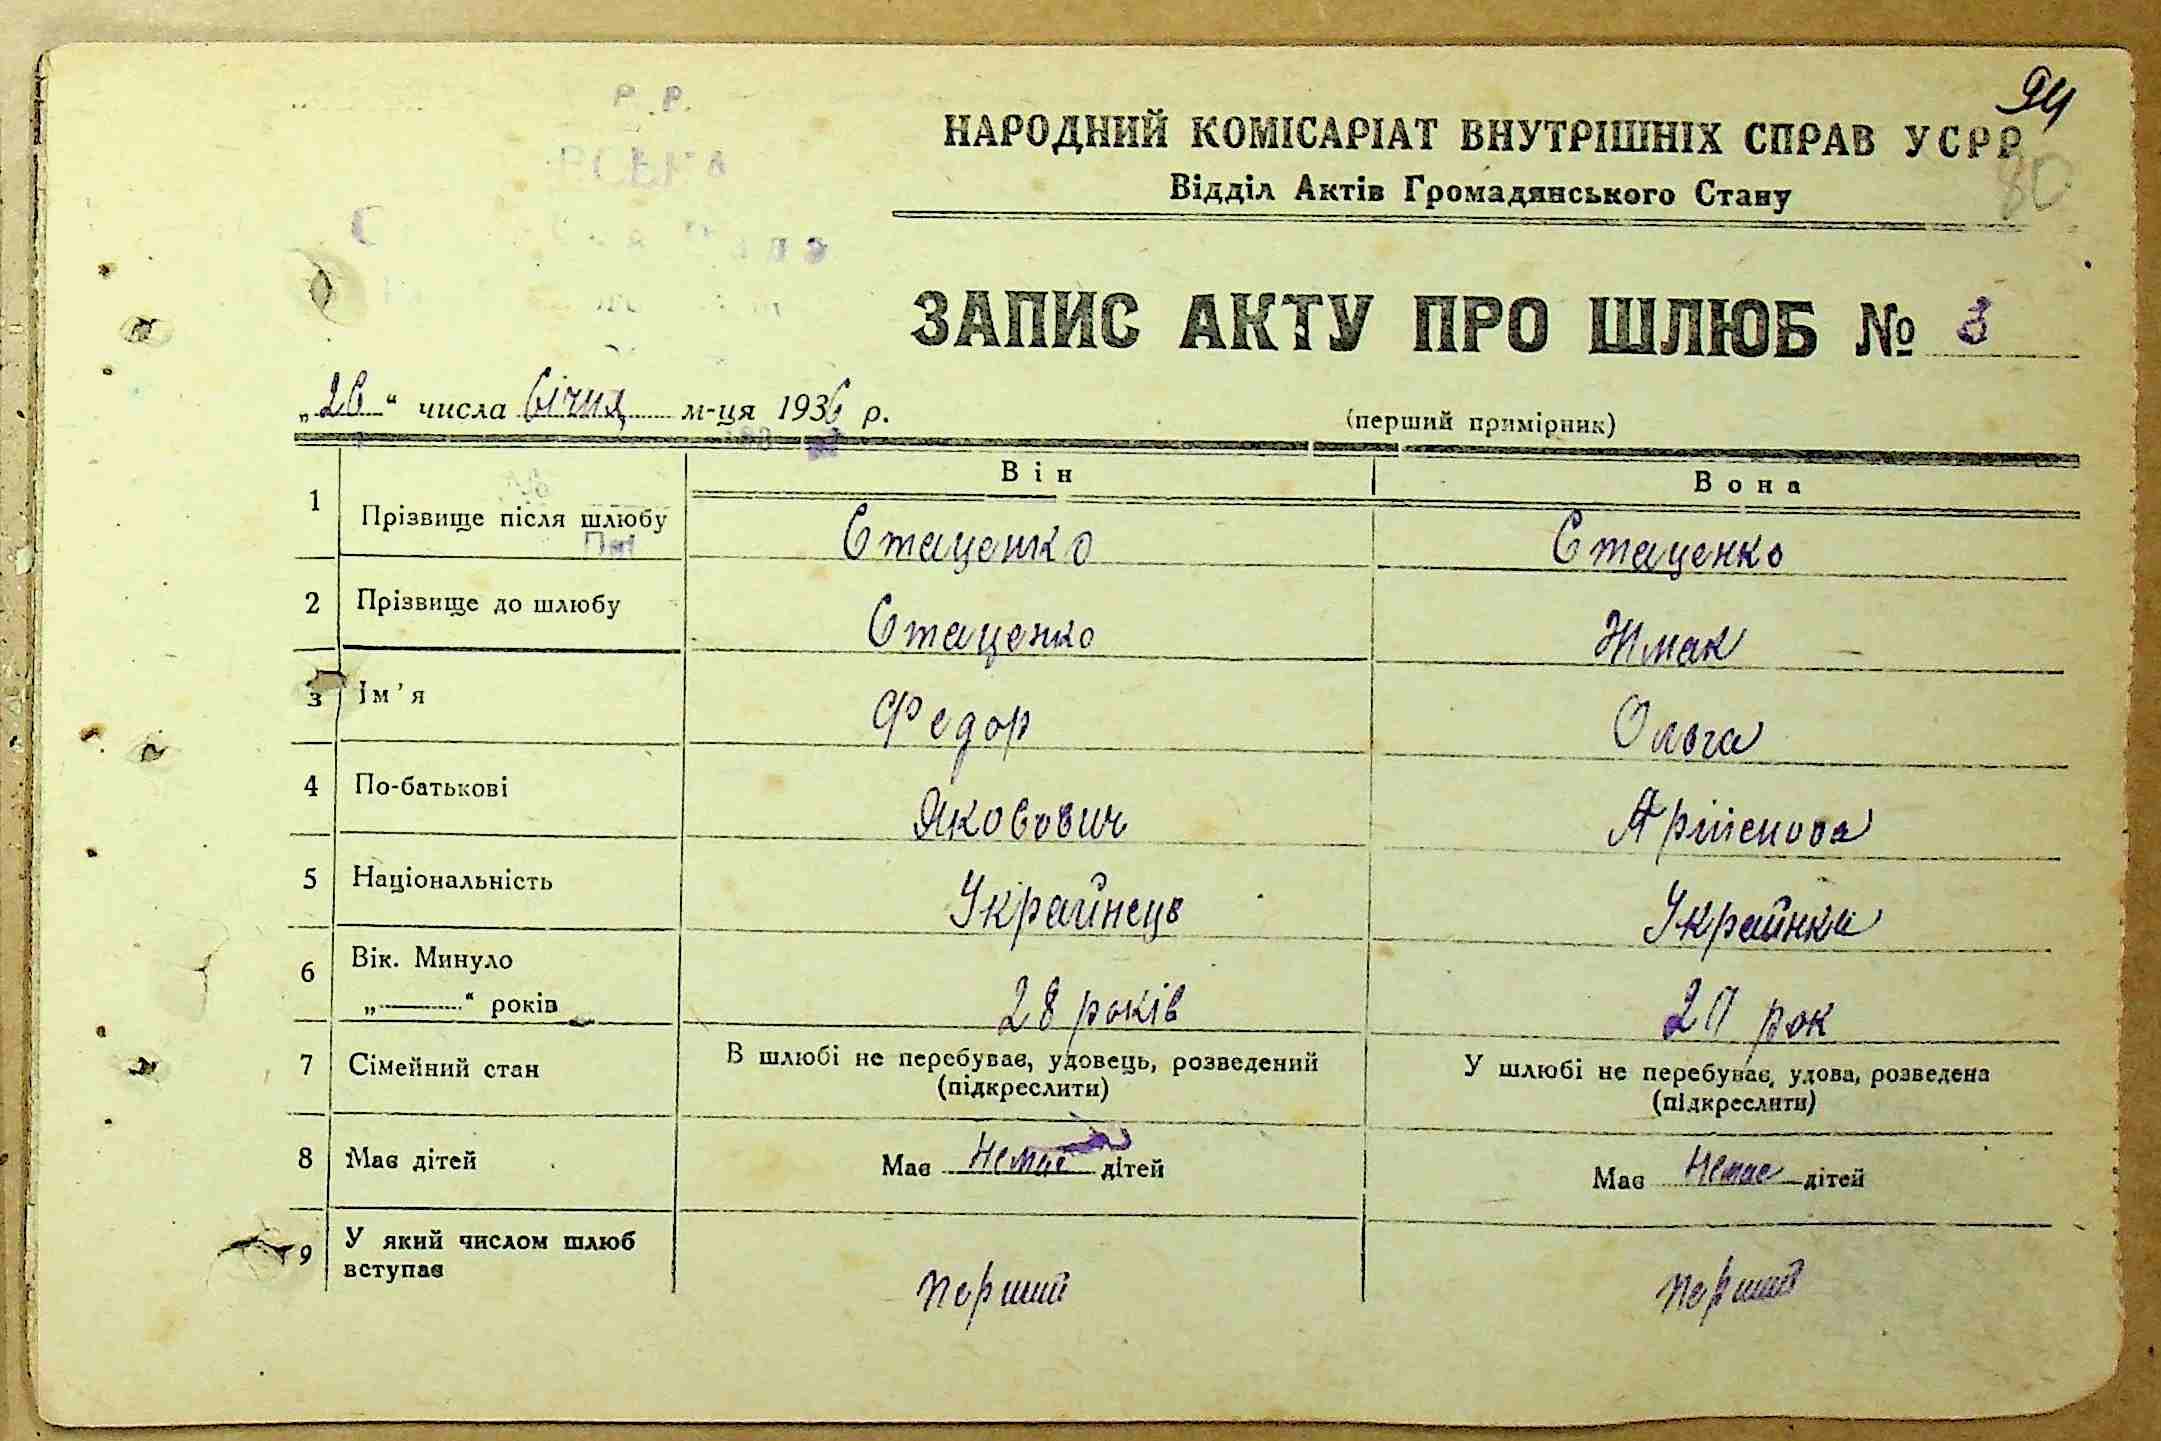 94
НАРОДНИЙ КОМІСАРІАТ ВНУТРІШНІХ СПРАВ УСРР
80
Відділ Актів Громадянського Стану
ЗАПИС АКТУ ПРО ШЛЮБ № 3
„26“ числа Січня м-ця 1936 р.
(перший примірник)
Він Вона
1 Прізвище після шлюбу Стаценко Стаценко
2 Прізвище до шлюбу Стаценко Жмак
3 Ім'я Федор Ольга
4 По-батькові Якович
5 Національність Украйнець Украйнка
6 Вік. Минуло
„———“ років 28 років рок
7 Сімейний стан В шлюбі не перебуває, удовець, розведений У шлюбі не перебуває, удова, розведена
(підкреслити) (підкреслити)
8 Має дітей Має Немає дітей Має Немає дітей
9 У який числом шлюб
вступає перший перший